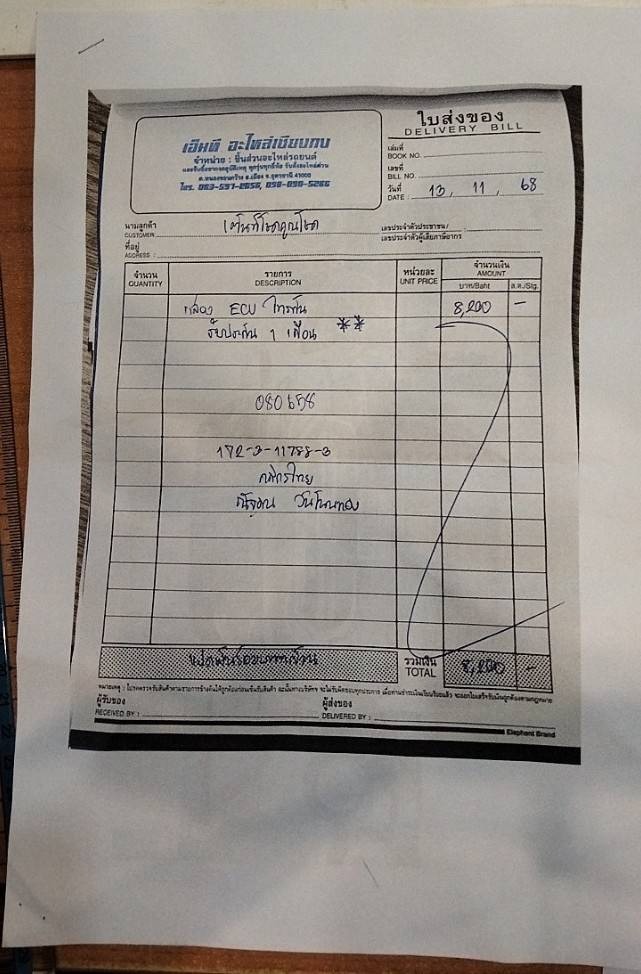 เอ็นที อะไหล่เชียงกง
จำหน่าย : ชิ้นส่วนอะไหล่รถยนต์
ต.หนองขอนกว้าง อ.เมือง จ.อุดรธานี 41000
โทร.
ใบส่งของ
DELIVERY BILL
เล่มที่
BOOK NO.
เลขที่
BILL NO.
วันที่
DATE : 13, 11, 68
นามลูกค้า
CUSTOMER
เลขประจำตัวประชาชน /
เลขประจำตัวผู้เสียภาษีอากร
ที่อยู่
ADDRESS :
จำนวน
QUANTITY
รายการ
DESCRIPTION
หน่วยละ
UNIT PRICE
จำนวนเงิน
AMOUNT
บาท/Baht
ส.ต./Stg.
กล่อง ECU ไทรทัน 8,200 -
รับประกัน 1 เดือน **
172-3-11788-3
กสิกรไทย
แปดพันสองร้อยบาทถ้วน
รวมเงิน
TOTAL
8,200 -
ผู้รับของ
RECEIVED BY :
ผู้ส่งของ
DELIVERED BY :
Elephant Brand